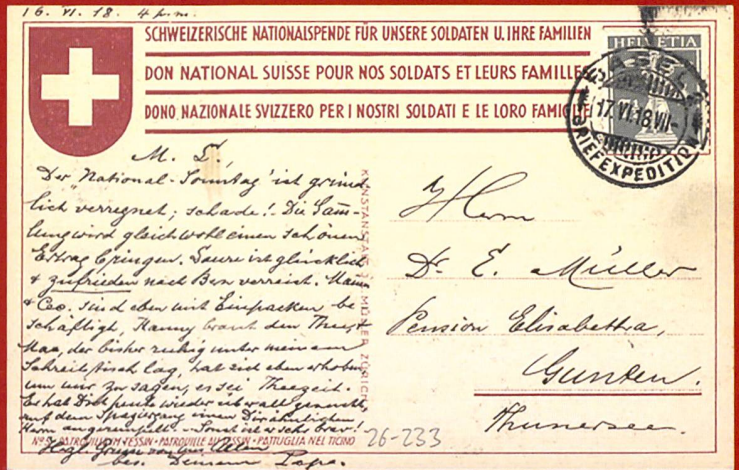 16. VI. 18. 4 p.m.
SCHWEIZERISCHE NATIONALSPENDE FÜR UNSERE SOLDATEN U. IHRE FAMILIEN
DON NATIONAL SUISSE POUR NOS SOLDATS ET LEURS FAMILLE
DONO NAZIONALE SVIZZERO PER I NOSTRI SOLDATI E LE LORO FAMIG
HELVETIA
BASEL
17.VI.18.VII-
BRIEFEXPEDITION
M. L.!
Der "National-Sonntag" ist gründ-
lich verregnet; schade! - Die Samm-
lung wird gleichwohl einen schönen
Ertrag bringen. ist glücklich
& zufrieden nach Bern verreist. Mama
& sind eben mit Einpacken be-
schäftigt, braut den Thee, &
der bisher ruhig unter meinem
Schreibtisch lag, hat sich eben erhoben,
um mir zu sagen, es sei Theezeit.
Er hat Dich heute wieder überall gesucht,
auf dem Spaziergang einen Dir ähnlichen
Herrn angerempelt. - Sonst ist er sehr brav!
Herzl. Grüsse von uns Allen
bes. Deinem Papa.
KUNSTANSTALT J. MÜLLER, ZÜRICH
Herrn
Dr. E. Müller
Pension Elisabetha,
Gunten.
Thunersee.
No 9. PATROUILLE IM TESSIN • PATROUILLE AU TESSIN • PATTUGLIA NEL TICINO
26-233